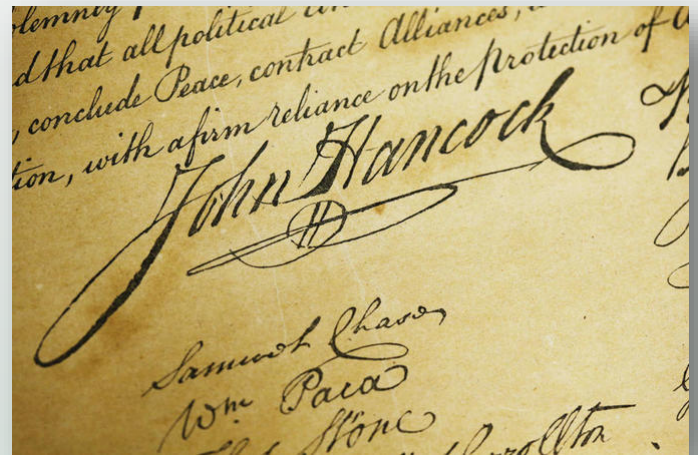 olemnly
d that all political
, conclude Peace, contract Alliances,
tion, with a firm reliance on the protection of
John Hancock
H
Samuel Chase
Wm Paca
Stone
Carrollton